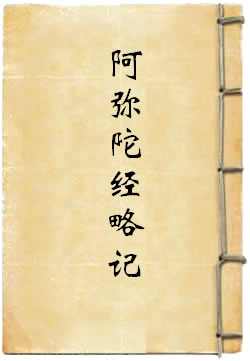 阿弥陀经略记